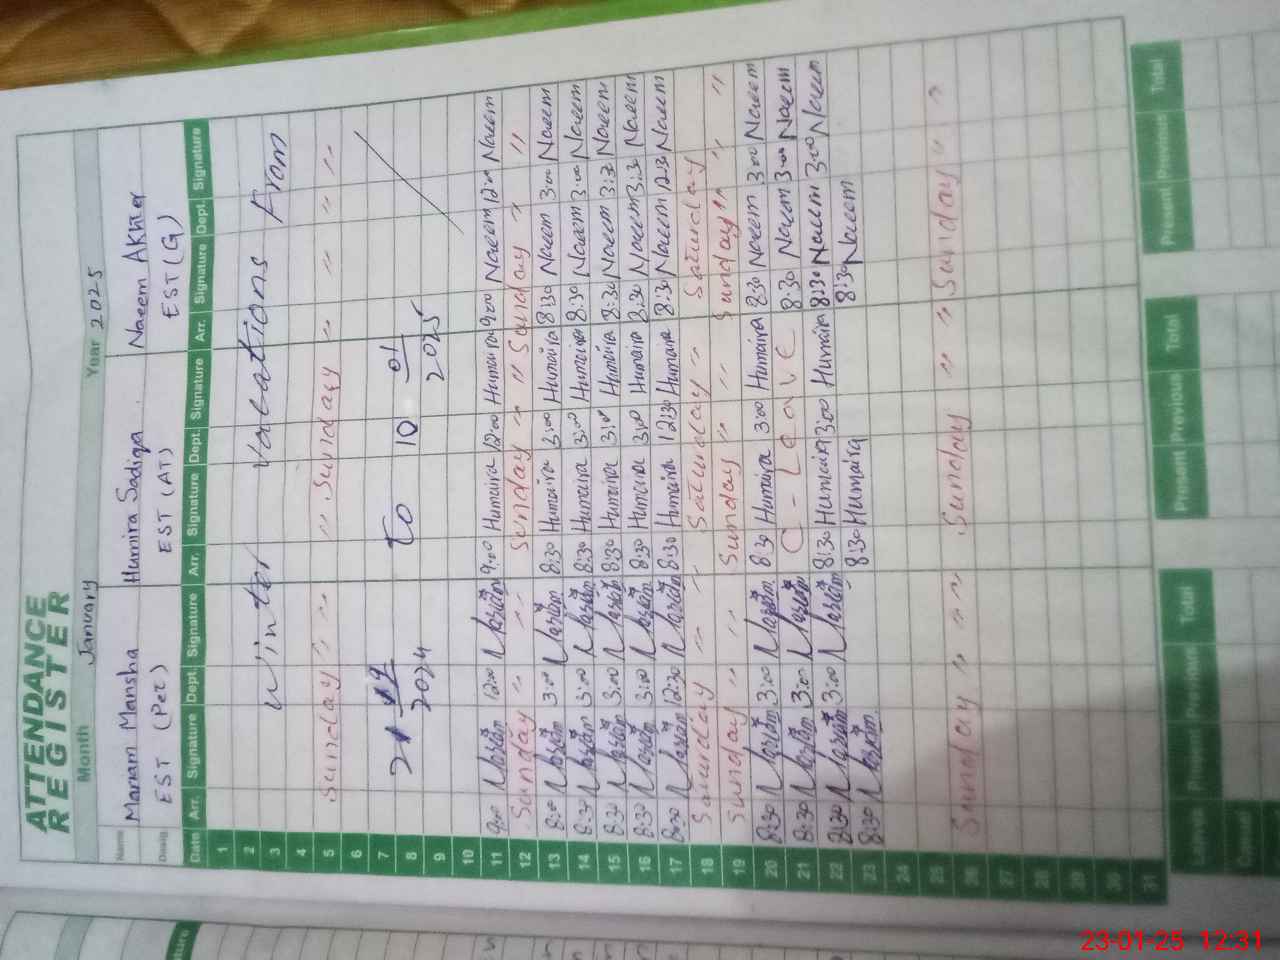 ATTENDANCE
REGISTER
Month January Year 2025
Name Mariam Mansha Humira Sadiqa Naeem Akhter
Desig. EST (Pet) EST (AT) EST (G)
Date Arr. Signature Dept. Signature Arr. Signature Dept. Signature Arr. Signature Dept. Signature
1
2 Winter Vacations From
3
4
5 Sunday " " " " Sunday " " " "
6
7
8 2024 to 10 01 2025
9
10
11 9:00 Mariam 12:00 Mariam 9:00 Humaira 12:00 Humaira 9:00 Naeem 12:00 Naeem
12 Sunday " " " Sunday " " Sunday " "
13 8:30 Mariam 3:00 Mariam 8:30 Humaira 3:00 Humaira 8:30 Naeem 3:00 Naeem
14 8:30 Mariam 3:00 Mariam 8:30 Humaira 3:00 Humaira 8:30 Naeem 3:00 Naeem
15 8:30 Mariam 3:00 Mariam 8:30 Humaira 3:00 Humaira 8:30 Naeem 3:30 Naeem
16 8:30 Mariam 3:00 Mariam 8:30 Humaira 3:00 Humaira 8:30 Naeem 3:30 Naeem
17 8:30 Mariam 12:30 Mariam 8:30 Humaira 12:30 Humaira 8:30 Naeem 12:30 Naeem
18 Saturday " " " Saturday " Saturday
19 Sunday " " " Sunday " " " Sunday " " "
20 8:30 Mariam 3:00 Mariam 8:30 Humaira 3:00 Humaira 8:30 Naeem 3:00 Naeem
21 8:30 Mariam 3:00 Mariam C - Leave 8:30 Naeem 3:00 Naeem
22 8:30 Mariam 3:00 Mariam 8:30 Humaira 3:00 Humaira 8:30 Naeem 3:00 Naeem
23 8:30 Mariam 8:30 Humaira 8:30 Naeem
24
25
26 Sunday " " " Sunday " " Sunday " "
27
28
29
30
31
Leaves Present Previous Total Present Previous Total Present Previous Total
Casual
ature
23-01-25 12:31